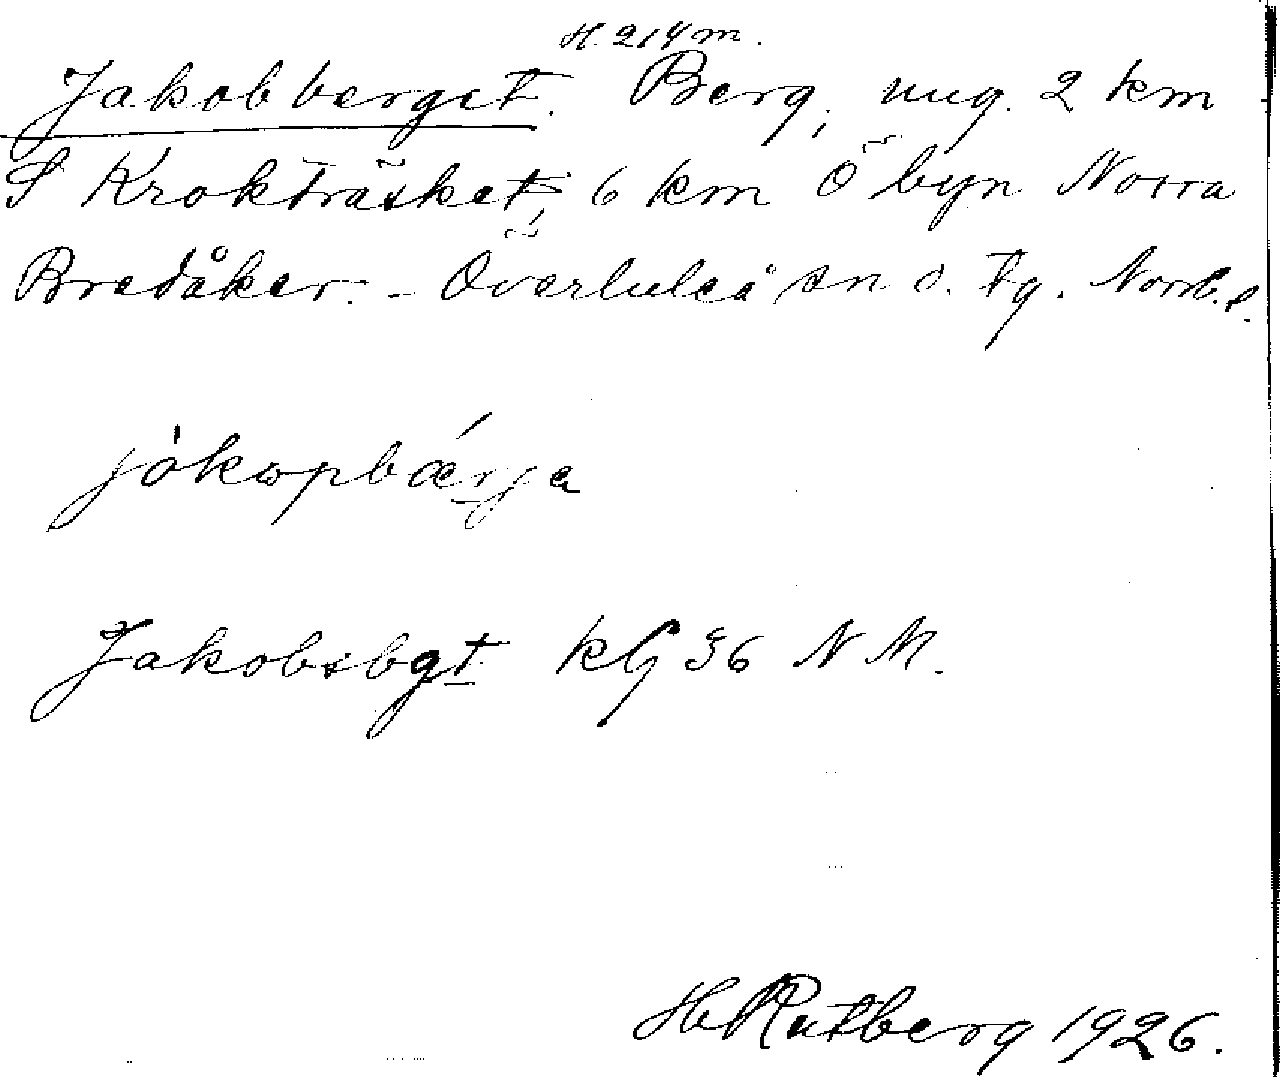 H. 214 m.
Jakobberget. Berg, ung. 2 km
S Krokträsket, 6 km Ö byn Norra
Bredåker. - Överluleå sn o. tg. Norrb. l.
jåkopbærja
Jakobsbgt kG 36 N M.
H Rutberg 1926.